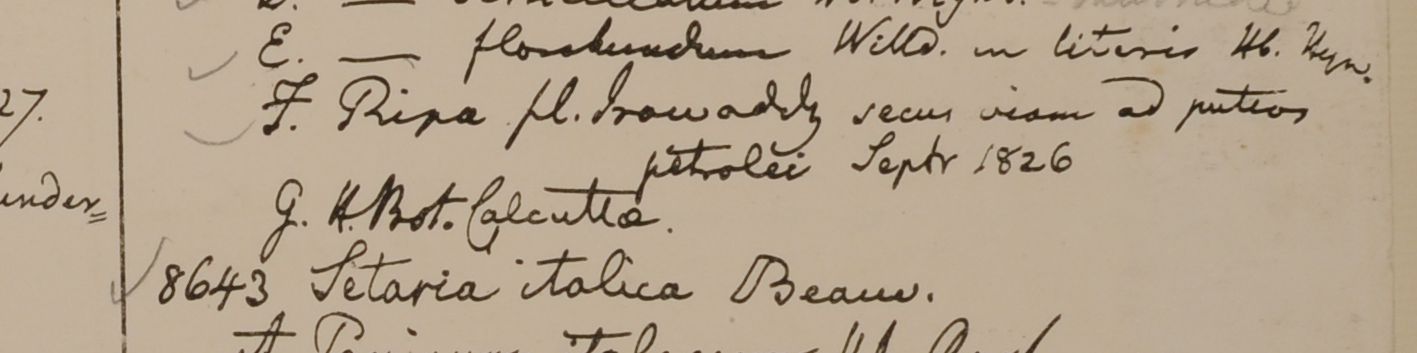 E. — floribundum Willd. in literis Hb. Heyn.
27.
F. Ripa fl. Irawaddy secus viam ad puteos
petrolei Septr 1826
under=
G. H. Bot. Calcutta.
8643 Setaria italica Beauv.
A Panicum italicum Hb.